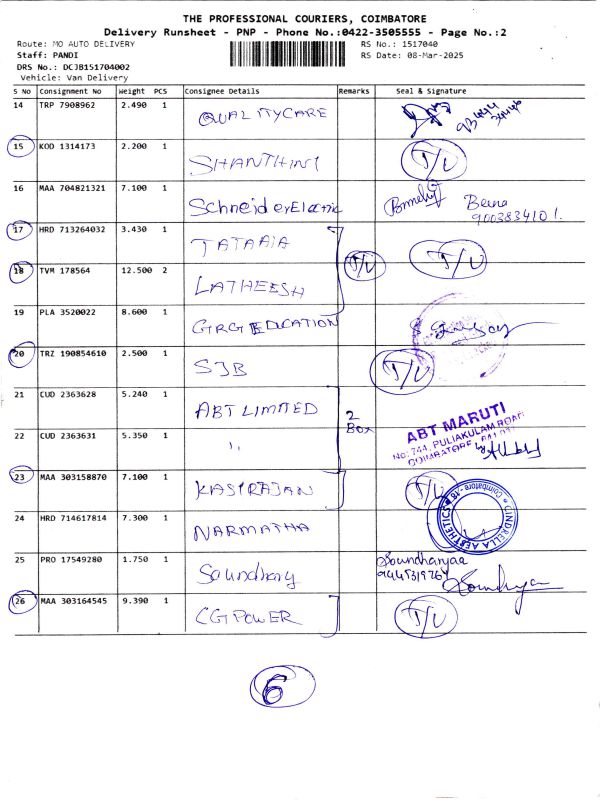 THE PROFESSIONAL COURIERS, COIMBATORE
Delivery Runsheet - PNP - Phone No.:0422-3505555 - Page No.:2
Route: MO AUTO DELIVERY RS No.: 1517040
Staff: PANDI RS Date: 08-Mar-2025
DRS No.: DCJB151704002
Vehicle: Van Delivery
S No Consignment No Weight PCS Consignee Details Remarks Seal & Signature
14 TRP 7908962 2.490 1 QUALITYCARE
15 KOD 1314173 2.200 1 SHANTHINI I/U
16 MAA 704821321 7.100 1 Schneider Electric Beena
9003834101.
17 HRD 713264032 3.430 1 TATA AIA I/U
18 TVM 178564 12.500 2 LATHEESH I/U
19 PLA 3520022 8.600 1 GRG EDUCATION
20 TRZ 190854610 2.500 1 SJB I/U
21 CUD 2363628 5.240 1 ABT LIMITED 2 Box ABT MARUTI
No: 744, PULIAKULAM ROAD
22 CUD 2363631 5.350 1 " COIMBATORE
23 MAA 303158870 7.100 1 KASIRAJAN I/U
24 HRD 714617814 7.300 1 NARMATHA CINDRELLA AESTHETICS Coimbatore
25 PRO 17549280 1.750 1 Soundhary Soundharyaa
26 MAA 303164545 9.390 1 CG POWER I/U
6